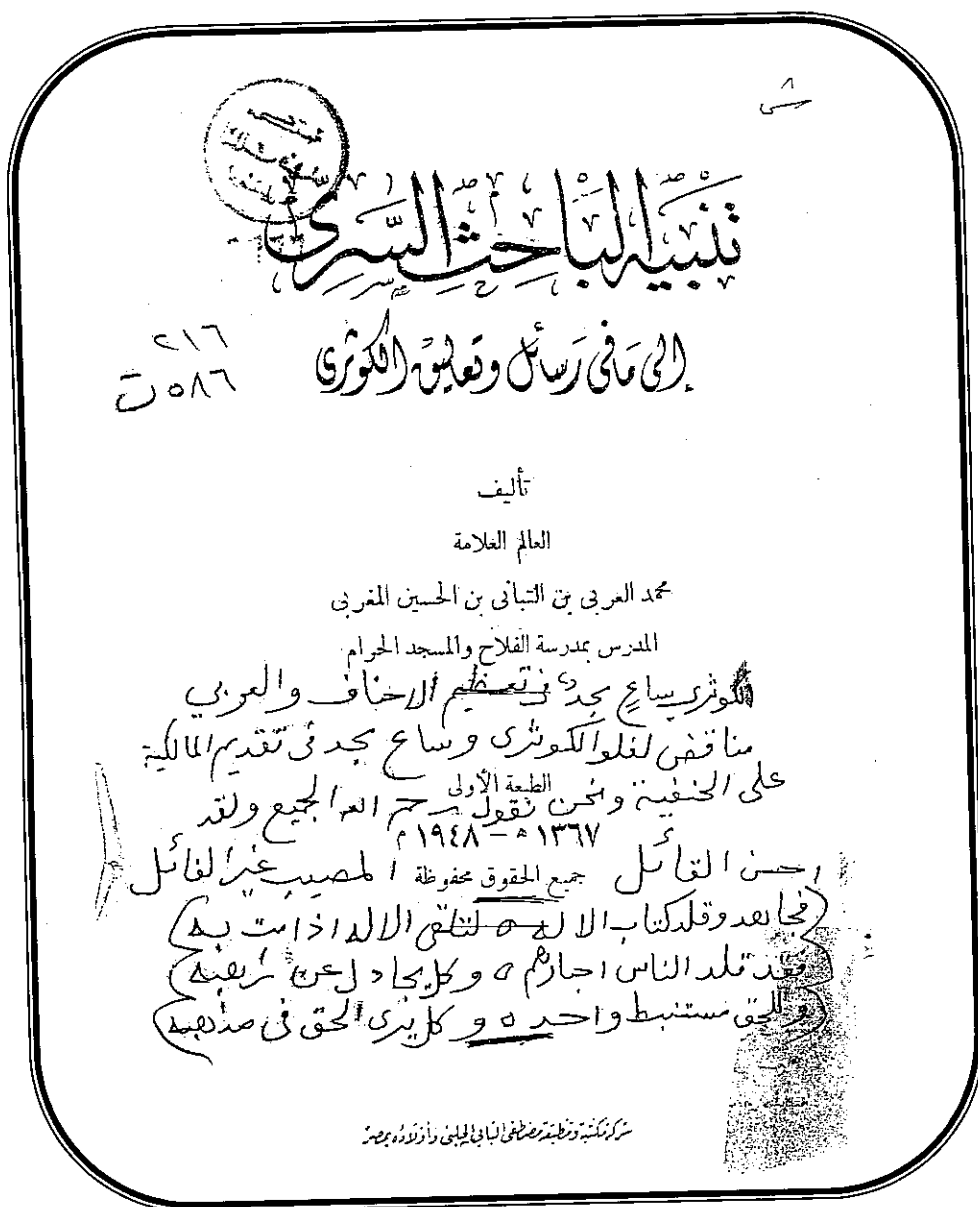 تنبيه الباحث السري
إلى ما في رسائل وتعاليق الكوثرى
٢١٦
٥٨٦ ت
تأليف
العالم العلامة
محمد العربى بن التبانى بن الحسين المغربى
المدرس بمدرسة الفلاح والمسجد الحرام
الكوثري ساعٍ بجد فى تعظيم الاحناف والعربي
مناقض لغلو الكوثرى وساع بجد فى تقديم المالكية
على الحنفية ونحن نقول رحم الله الجميع ولقد
الطبعة الأولى
١٣٦٧ ه – ١٩٤٨ م
احسن القائل المصيب غير الفائل
جميع الحقوق محفوظة
فجاهد وقلد كتاب الاله لتلقى الاله اذا مت به
فقد قلد الناس احبارهم وكل يجادل عن
وللحق مستنبط واحد وكل يرى الحق فى مذهبه
شركة مكتبة ومطبعة مصطفى البابى الحلبى وأولاده بمصر